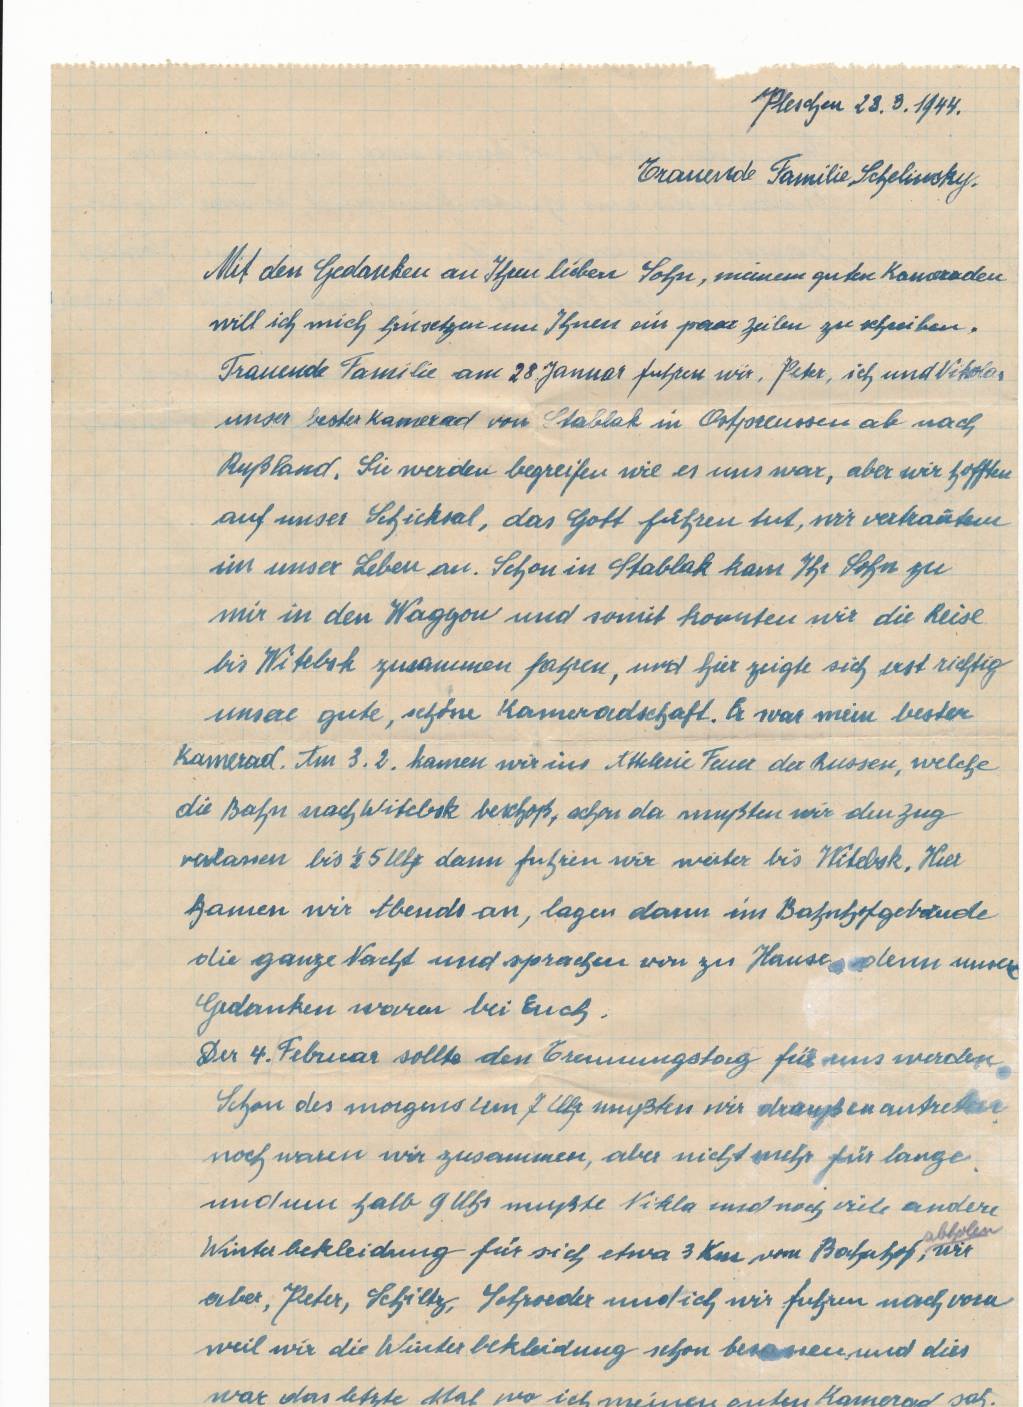 Pleschen 23. 3. 1944.
Trauernde Familie Schelinsky.
Mit den Gedanken an Ihren lieben Sohn, meinem guten Kameraden
will ich mich hinsetzen um Ihnen ein paar Zeilen zu schreiben.
Trauernde Familie am 28 Januar fuhren wir, Peter, ich und Nikola,
unser bester Kamerad von Stablak in Ostpreussen ab nach
Rußland. Sie werden begreifen wie es uns war, aber wir hofften
auf unser Schicksal, das Gott führen tut, wir vertrauten
im unser Leben an. Schon in Stablak kam Ihr Sohn zu
mir in den Waggon und somit konnten wir die Reise
bis Witebsk zusammen fahren, und hier zeigte sich erst richtig
unsere gute, schöne Kameradschaft. Er war mein bester
Kamerad. Am 3. 2. kamen wir ins Attelerie Feuer der Russen, welche
die Bahn nach Witebsk beschoß, schon da mußten wir den Zug
verlassen bis ½ 5 Uhr dann fuhren wir weiter bis Witebsk. Hier
kamen wir Abends an, lagen dann im Bahnhofgebäude
die ganze Nacht und sprachen von zu Hause, denn unsere
Gedanken waren bei Euch.
Der 4. Februar sollte den Trennungstag für uns werden.
Schon des morgens um 7 Uhr mußten wir draußen antreten
noch waren wir zusammen, aber nicht mehr für lange
und um halb 9 Uhr mußte Nikla und noch viele andere
Winterbekleidung für sich etwa 3 Km vom Bahnhof abholen, wir
aber, Peter, Schiltz, Schroeder und ich wir fuhren nach vorn
weil wir die Winterbekleidung schon besassen, und dies
war das letzte Mal wo ich meinen guten Kamerad sah.